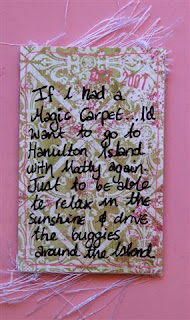 If I had a
Magic Carpet...I'd
Want to go to
Hamilton Island
with Matty again.
Just to be able
to relax in the
Sunshine & drive
the buggies
around the Island